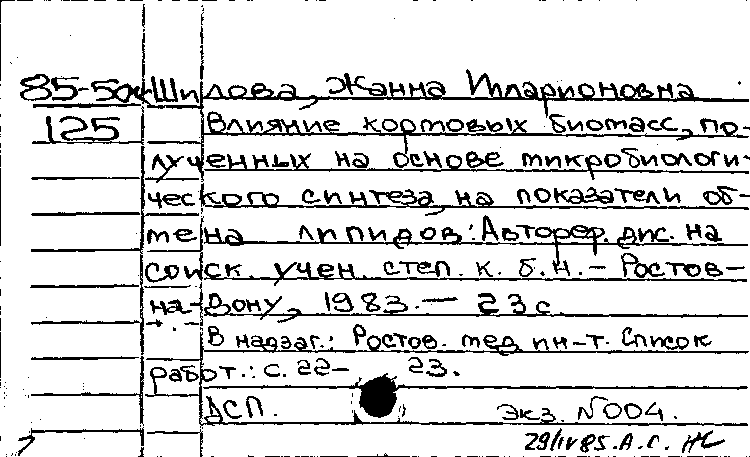 85-5дк Шилова, Жанна Илларионовна
125 Влияние кормовых биомасс, по-
лученных на основе микробиологи-
ческого синтеза, на показатели об-
мена липидов: Автореф. дис. на
соиск. учен. степ. к. б. н. - Ростов-
на-Дону, 1983. - 23 с
В надзаг.: Ростов. мед. ин-т. Список
работ.: с. 22-23.
ДСП. Экз. №004.
29/IV85. А.С. НС